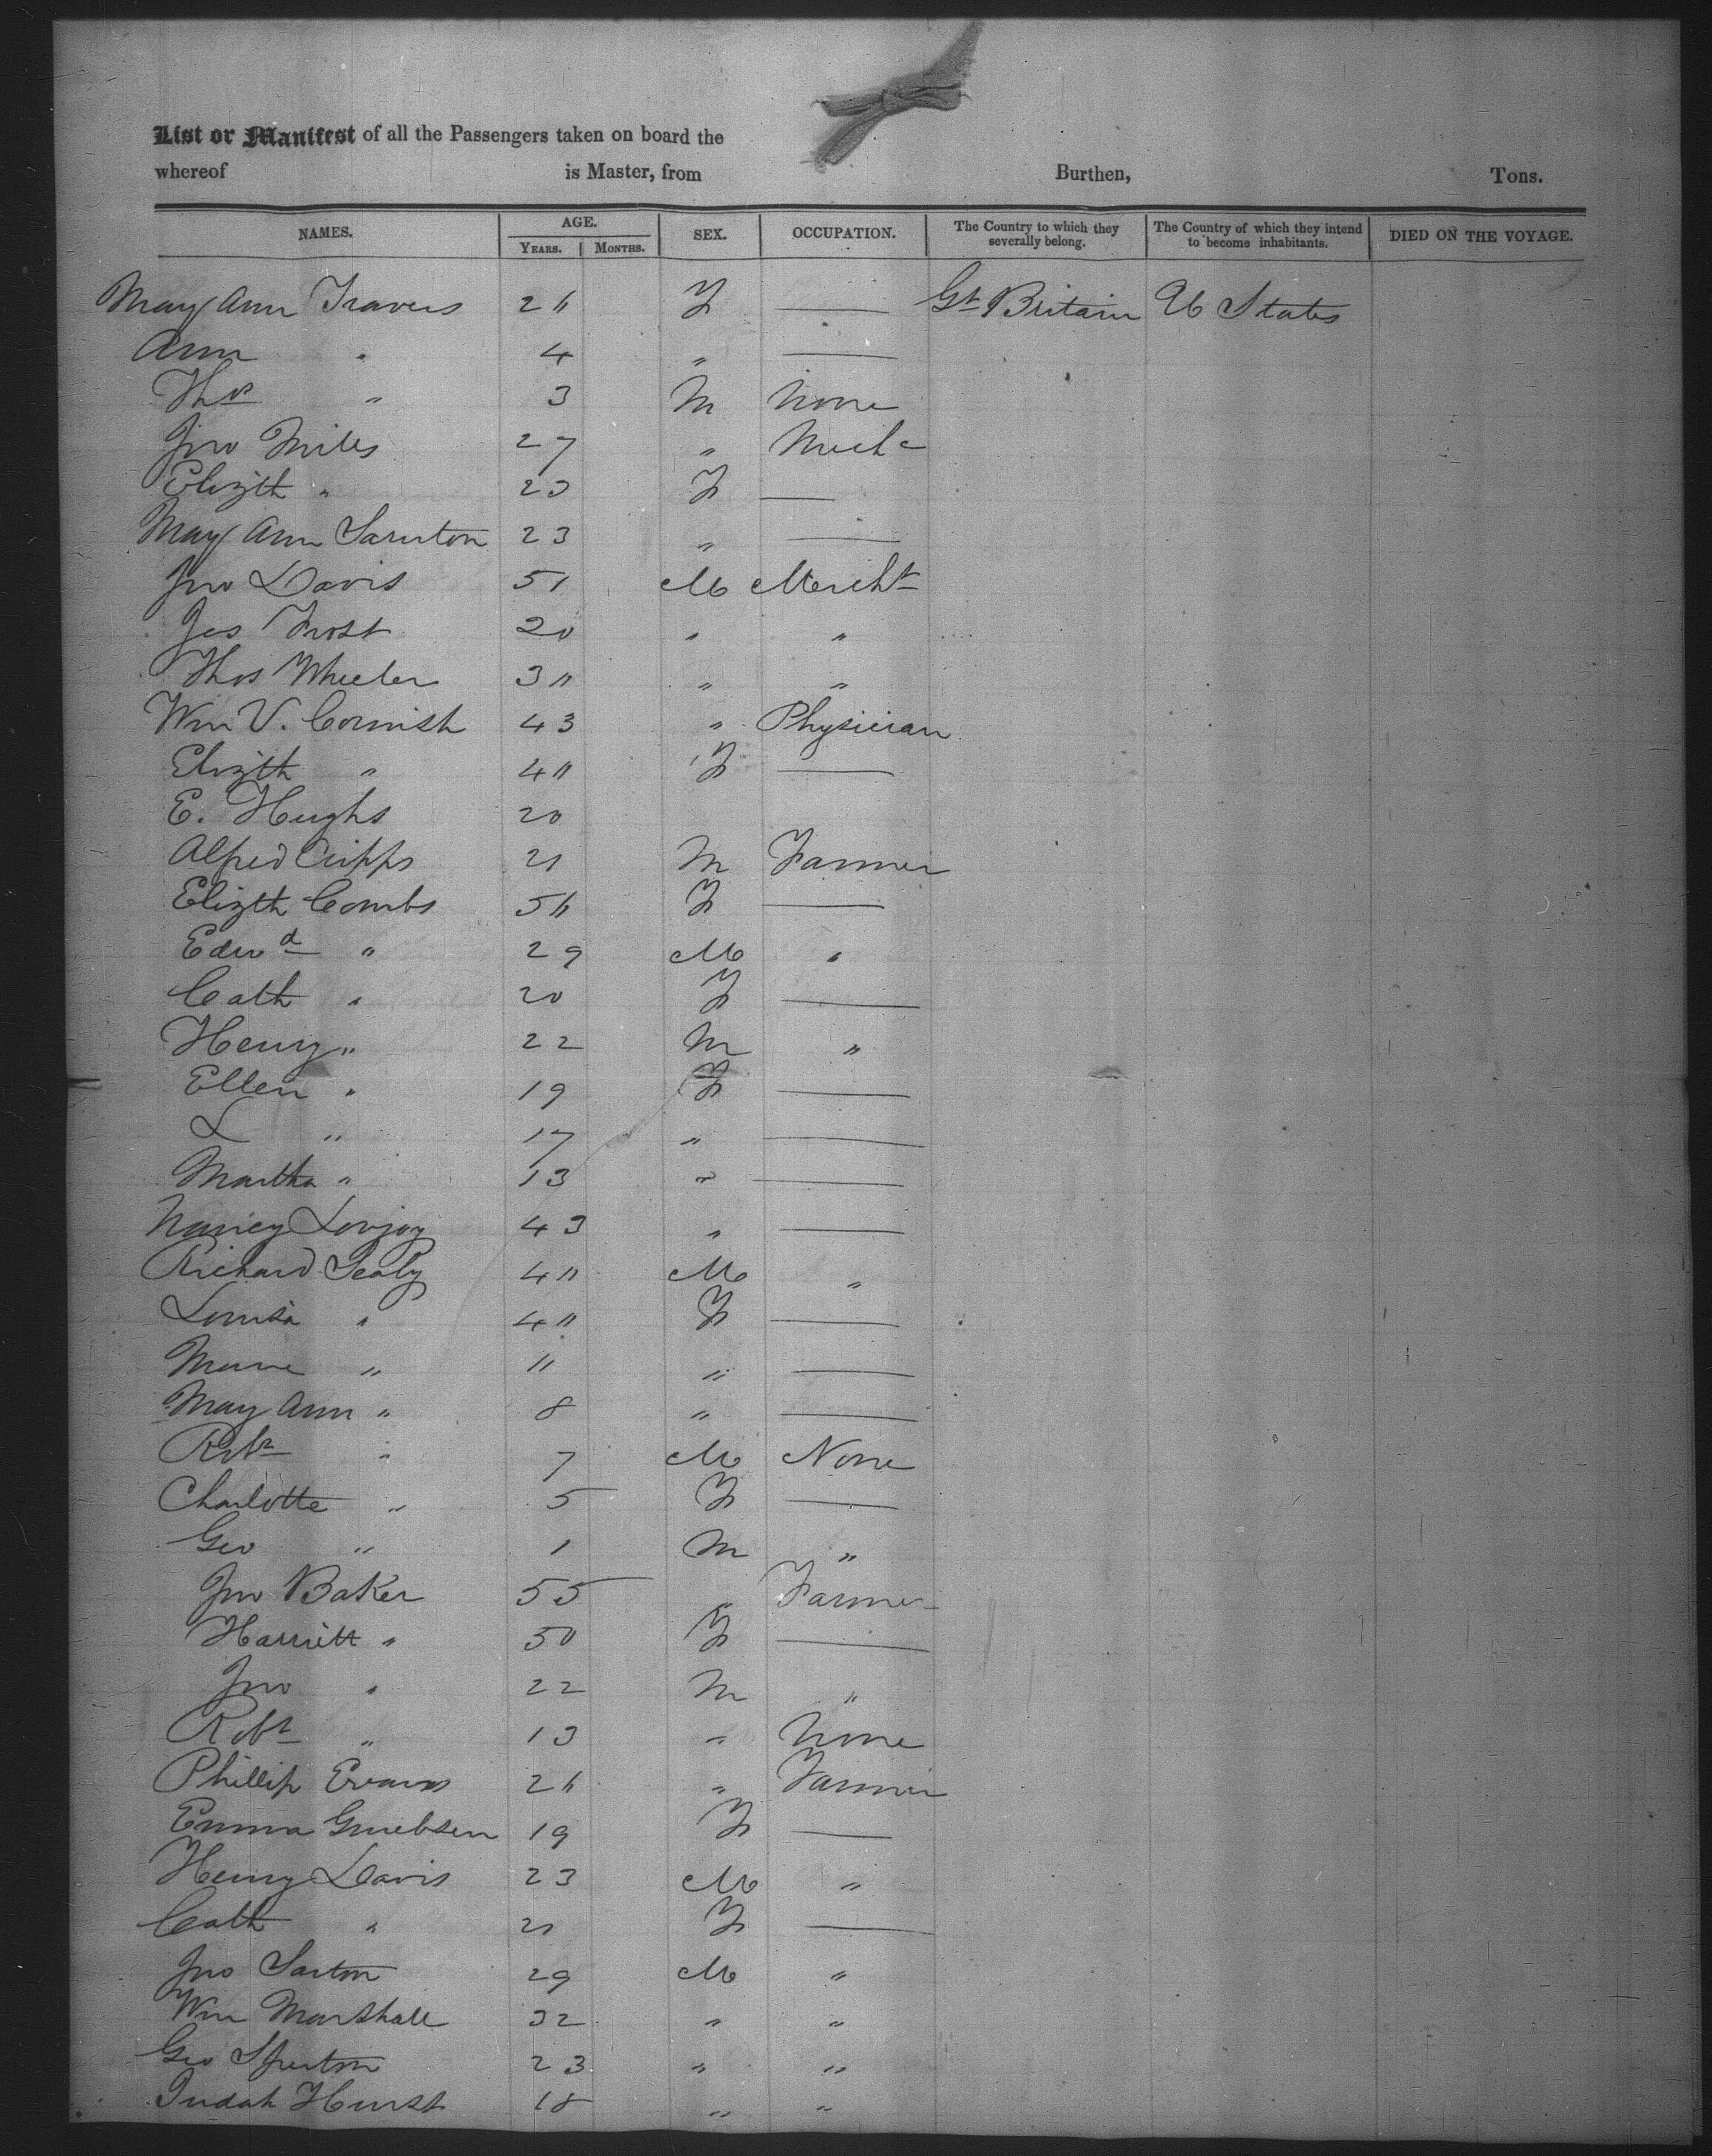 List or Manifest of all the Passengers taken on board the
whereof is Master, from Burthen, Tons.
NAMES. AGE. SEX. OCCUPATION. The Country to which they severally belong. The Country of which they intend to become inhabitants. DIED ON THE VOYAGE.
YEARS. MONTHS.
Mary Ann Travers 26 F — Gt Britain U States
Ann " 4 " —
Thos " 3 M None
Jno Miles 27 " Mech c
Elizth " 23 F —
Mary Ann 23 " —
Jno Davis 51 M Mercht
Jas Frost 20 " "
Thos Wheeler 30 " "
Wm V. Cornish 43 " Physician
Elizth " 40 F —
E. Hughs 20
Alfred Cripps 21 M Farmer
Elizth Combs 56 F —
Edwd " 29 M "
Cath " 20 F —
Henry " 22 M "
Ellen " 19 F —
L " 17 " —
Martha " 13 " —
Nancy Lovjoy 43 " —
Richard Sealy 40 M "
Louisa " 40 F —
" 11 " —
May Ann " 8 " —
Robt " 7 M None
Charlotte " 5 F —
Geo " 1 M "
Jno Baker 55 " Farmer
Harriett " 50 F —
Jno " 22 M "
Robt " 13 " None
Phillip Evans 26 " Farmer
Emma 19 F —
Henry Davis 23 M "
Cath " 21 F —
Jno Sarton 29 M "
Wm Marshall 32 " "
Geo 23 " "
Judah Hurst 18 " "